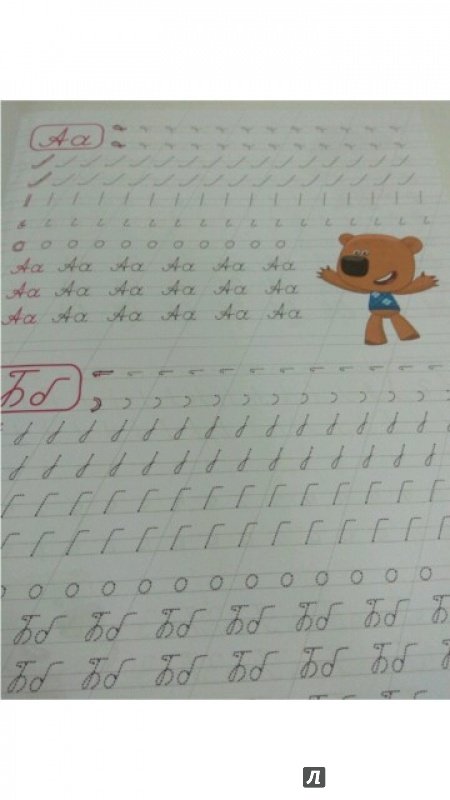 Аа
Аа Аа Аа Аа Аа Аа
Аа Аа Аа Аа Аа Аа
Аа Аа Аа Аа Аа Аа
Бб
о о о о о о о о о о о о
Бб Бб Бб Бб Бб Бб Б
Бб Бб Бб Бб Бб Бб
Л